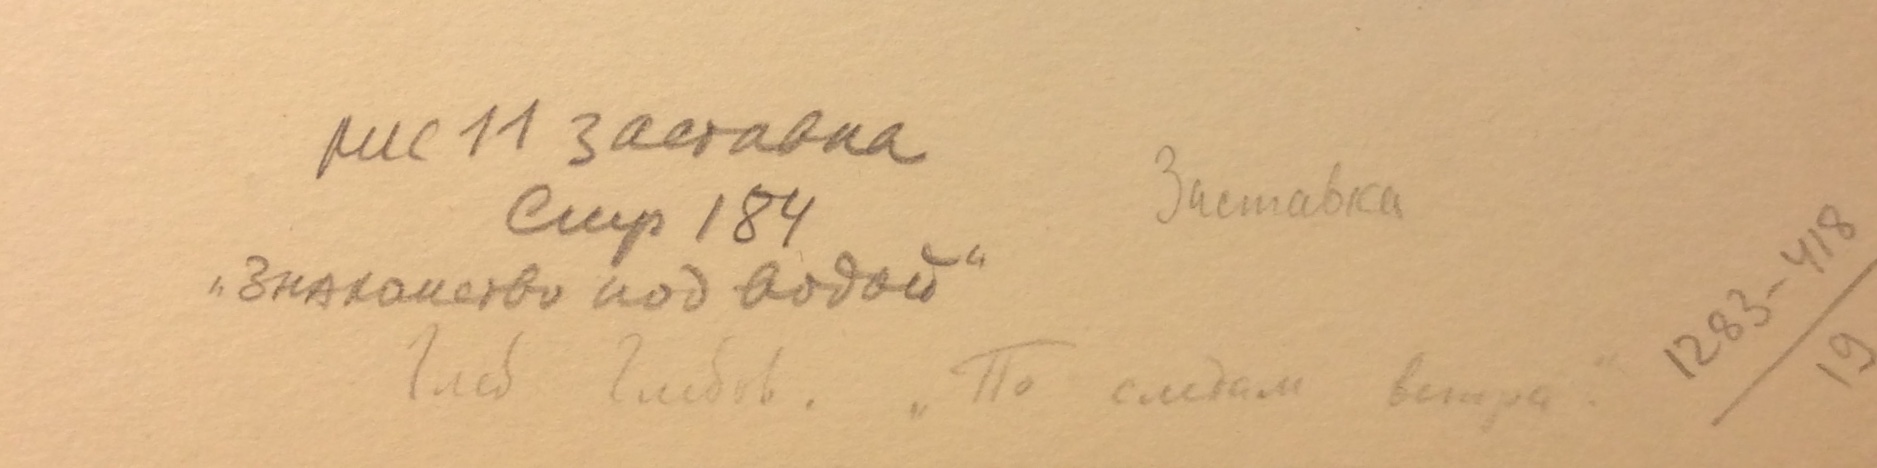 рис 11 заставка
Стр 184
Заставка
„Знакомство под водой“
Глеб Глебов. „По следам ветра“.
1283-418
19